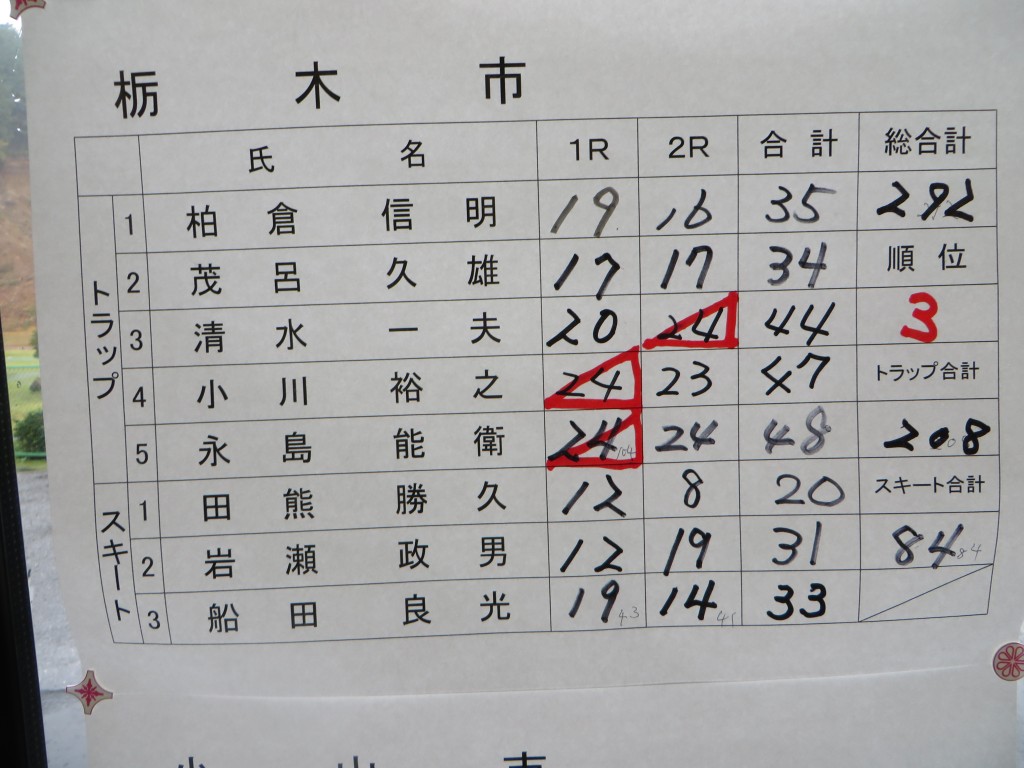 栃木市
氏名 1R 2R 合計 総合計
トラップ
1 柏倉 信明 19 16 35 292
2 茂呂 久雄 17 17 34 順位
3 清水 一夫 20 24 44 3
4 小川 裕之 24 23 47 トラップ合計
5 永島 能衛 24 104 24 48 208
スキート
1 田熊 勝久 12 8 20 スキート合計
2 岩瀬 政男 12 19 31 84 84
3 船田 良光 19 43 14 41 33